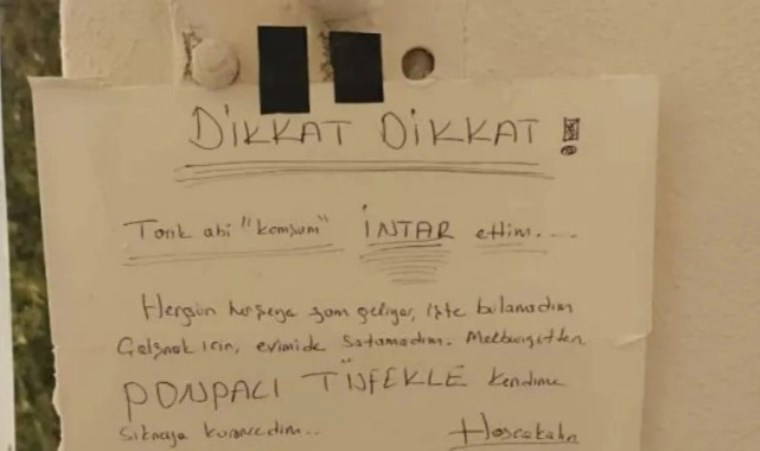 DİKKAT DİKKAT !
Tarık abi "komşum" İNTAR ettim....
Hergün herşeye zam geliyor, işte bulamadım
Çalışmak için, evimide satamadım. Mecburiyetten
PONPALI TÜFEKLE kendime
Sıkmaya kararverdim..
Hoşcakalın